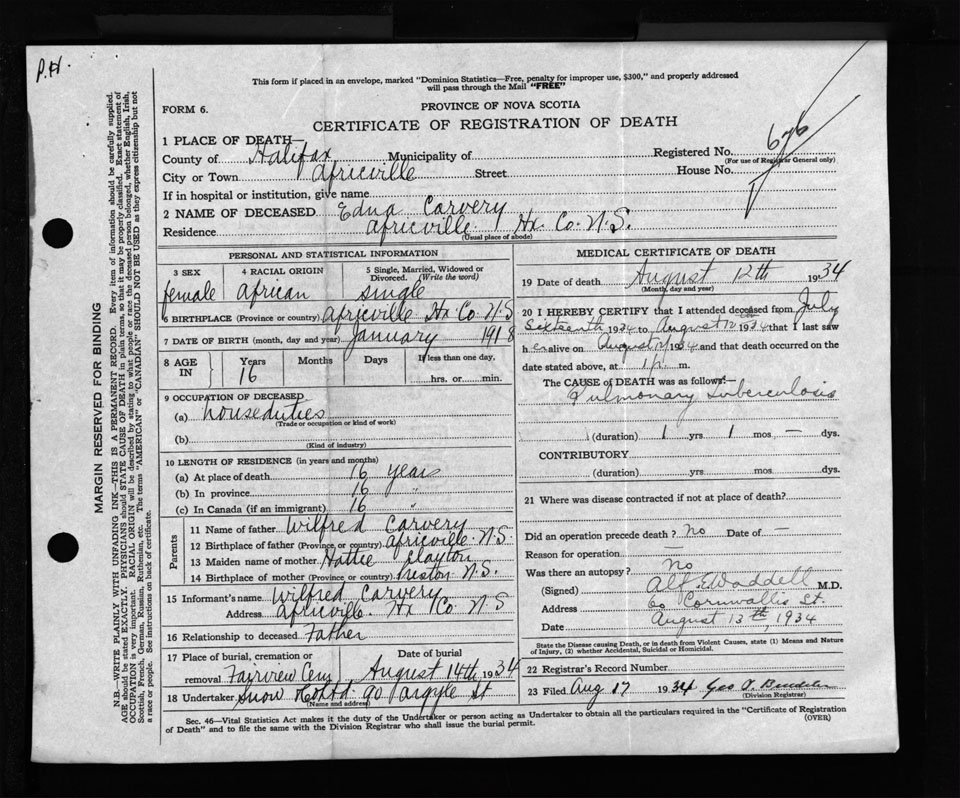 P.H.
This form if placed in an envelope, marked "Dominion Statistics—Free, penalty for improper use, $300," and properly addressed
will pass through the Mail "FREE"
FORM 6.
PROVINCE OF NOVA SCOTIA
CERTIFICATE OF REGISTRATION OF DEATH
1 PLACE OF DEATH—
Registered No. 626
County of Halifax Municipality of
(For use of Registrar General only)
City or Town Africville Street House No.
If in hospital or institution, give name
2 NAME OF DECEASED Edna Carvery
Residence Africville Hx. Co. N.S.
(Usual place of abode)
PERSONAL AND STATISTICAL INFORMATION
3 SEX 4 RACIAL ORIGIN 5 Single, Married, Widowed or
Divorced. (Write the word)
female African single
6 BIRTHPLACE (Province or country) Africville Hx Co N.S
7 DATE OF BIRTH (month, day and year) January 1918
8 AGE IN Years Months Days If less than one day,
16 hrs. or min.
9 OCCUPATION OF DECEASED
(a) house duties
(Trade or occupation or kind of work)
(b)
(Kind of industry)
10 LENGTH OF RESIDENCE (in years and months)
(a) At place of death 16 years
(b) In province 16 "
(c) In Canada (if an immigrant) 16 "
Parents
11 Name of father Wilfred Carvery
12 Birthplace of father (Province or country) Africville N.S.
13 Maiden name of mother Hattie Clayton
14 Birthplace of mother (Province or country) Preston N.S.
15 Informant's name Wilfred Carvery
Address Africville Hx Co N S
16 Relationship to deceased Father
17 Place of burial, cremation or Date of burial
removal Fairview Cem, August 14th 1934
18 Undertaker Snow & Co Ltd 90 Argyle St
(Name and address)
MEDICAL CERTIFICATE OF DEATH
19 Date of death August 12th 1934
(Month, day and year)
20 I HEREBY CERTIFY that I attended deceased from July
Sixteenth 1934 to August 12th 1934 that I last saw
her alive on August 1934 and that death occurred on the
date stated above, at 1 p. m.
The CAUSE of DEATH was as follows:—
Pulmonary Tuberculosis
(duration) 1 yrs 1 mos — dys.
CONTRIBUTORY
(duration) yrs. mos. dys.
21 Where was disease contracted if not at place of death?
Did an operation precede death? no Date of —
Reason for operation —
Was there an autopsy? No
(Signed) Alf E Waddell M.D.
Address 60 Cornwallis St.
Date August 13th, 1934
State the Disease causing Death, or in death from Violent Causes, state (1) Means and Nature
of Injury, (2) whether Accidental, Suicidal or Homicidal.
22 Registrar's Record Number
23 Filed Aug 17 1934 Geo
(Division Registrar)
Sec. 46—Vital Statistics Act makes it the duty of the Undertaker or person acting as Undertaker to obtain all the particulars required in the "Certificate of Registration
of Death" and to file the same with the Division Registrar who shall issue the burial permit.
(OVER)
MARGIN RESERVED FOR BINDING
N.B.—WRITE PLAINLY WITH UNFADING INK—THIS IS A PERMANENT RECORD. Every item of information should be carefully supplied.
AGE should be stated EXACTLY. PHYSICIANS should STATE CAUSE OF DEATH in plain terms, so that it may be properly classified. Exact statement of
OCCUPATION is very important. RACIAL ORIGIN will be described by stating to what people or race the deceased person belonged, whether English, Irish,
Scottish, French, German, Russian, Ruthenian, etc. The terms "AMERICAN" or "CANADIAN" SHOULD NOT BE USED as they express citizenship but not
a race or people. See instructions on back of certificate.